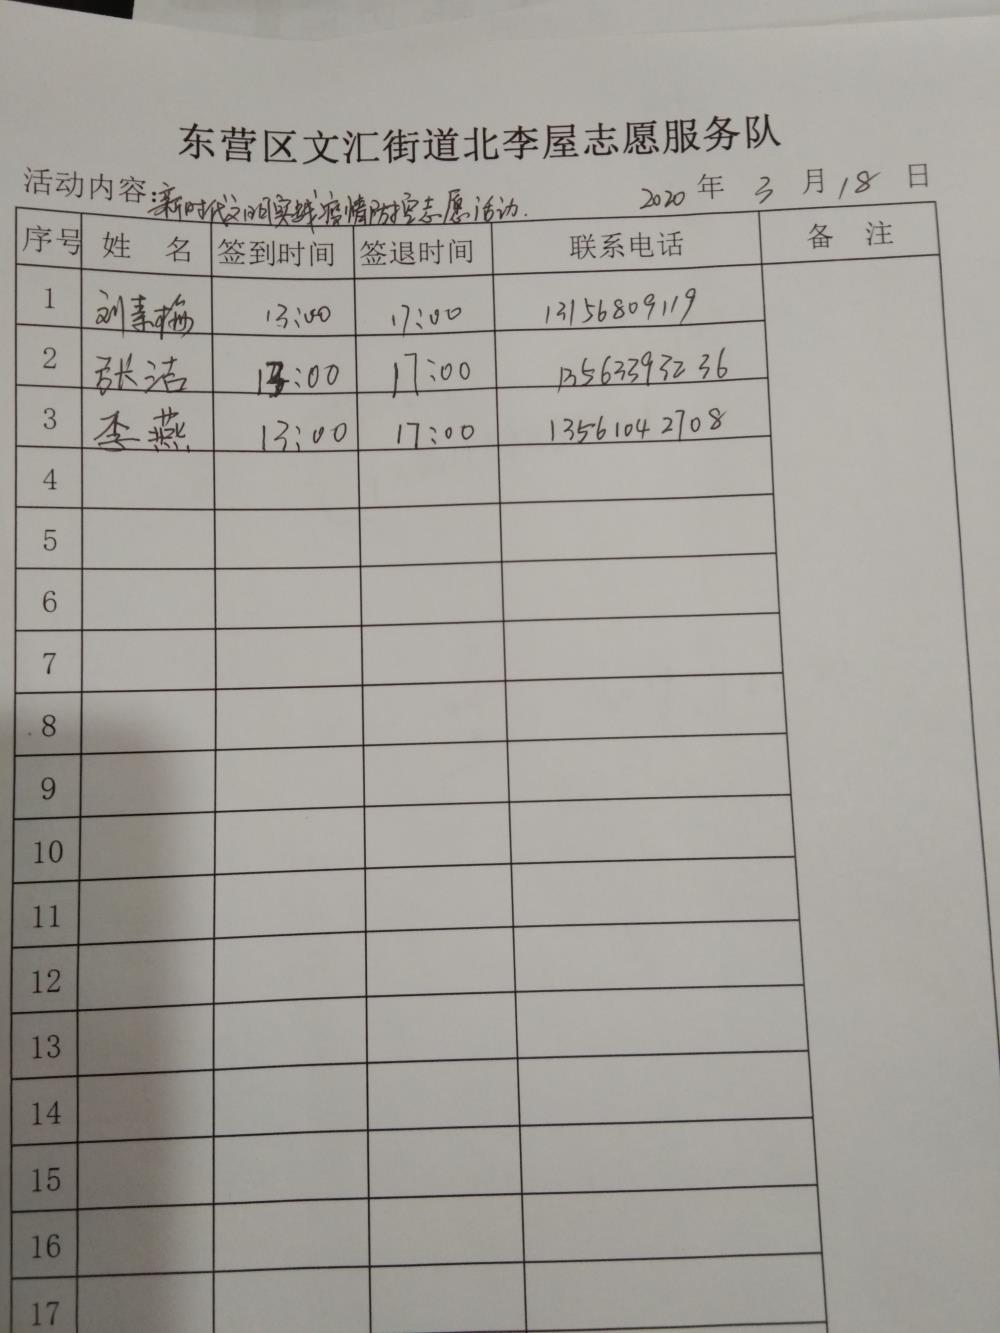 东营区文汇街道北李屋志愿服务队
活动内容:新时代文明实践疫情防控志愿活动. 2020年3月18日
序号 姓 名 签到时间 签退时间 联系电话 备 注
1 刘素梅 13:00 17:00 13156809119
2 张洁 13:00 17:00 13563393236
3 李燕 13:00 17:00 13561042708
4
5
6
7
8
9
10
11
12
13
14
15
16
17